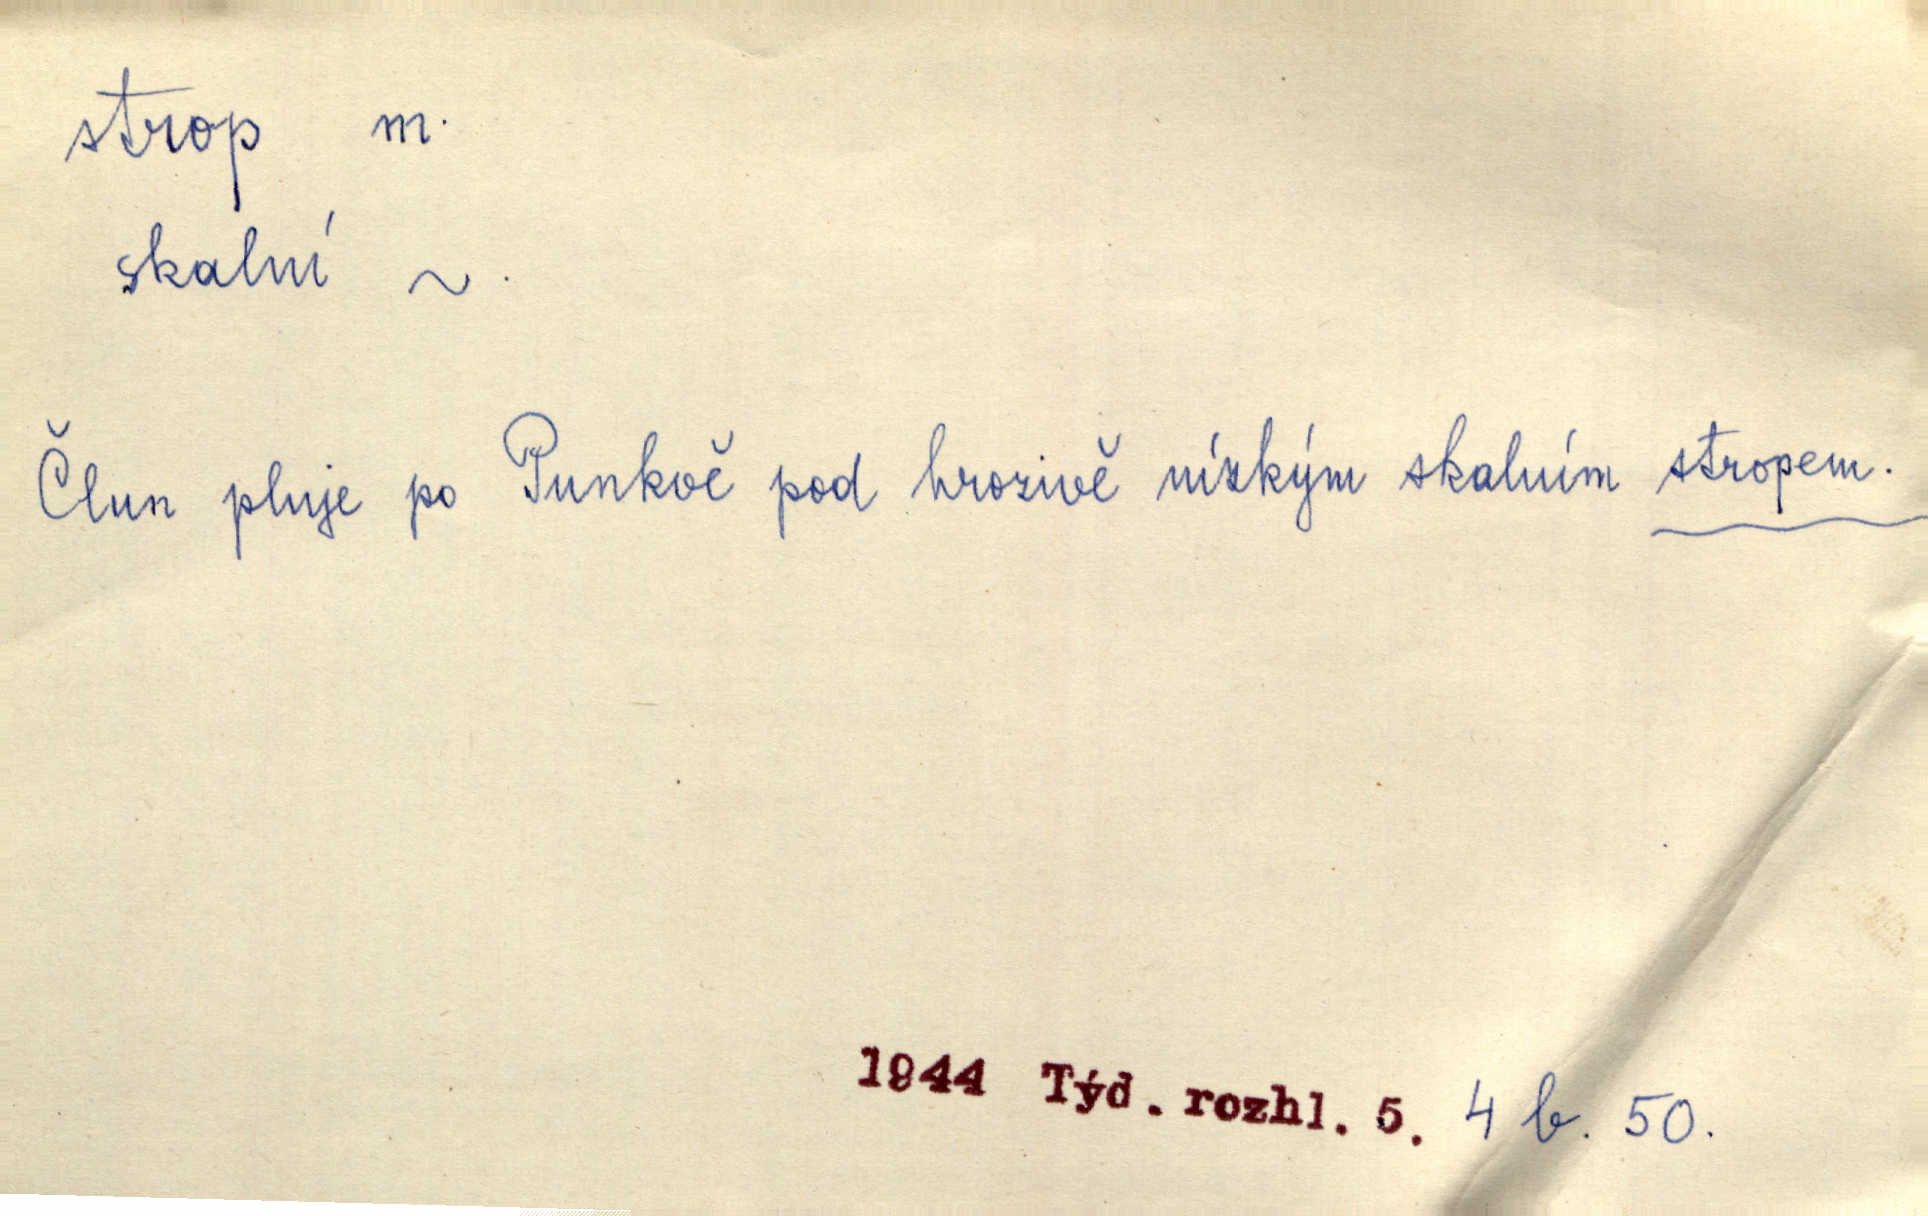 strop m.
skalní ~.
Člun pluje po Punkvě pod hrozivě nízkým skalním stropem.
1944 Týd. rozhl. 5. 4 b. 50.